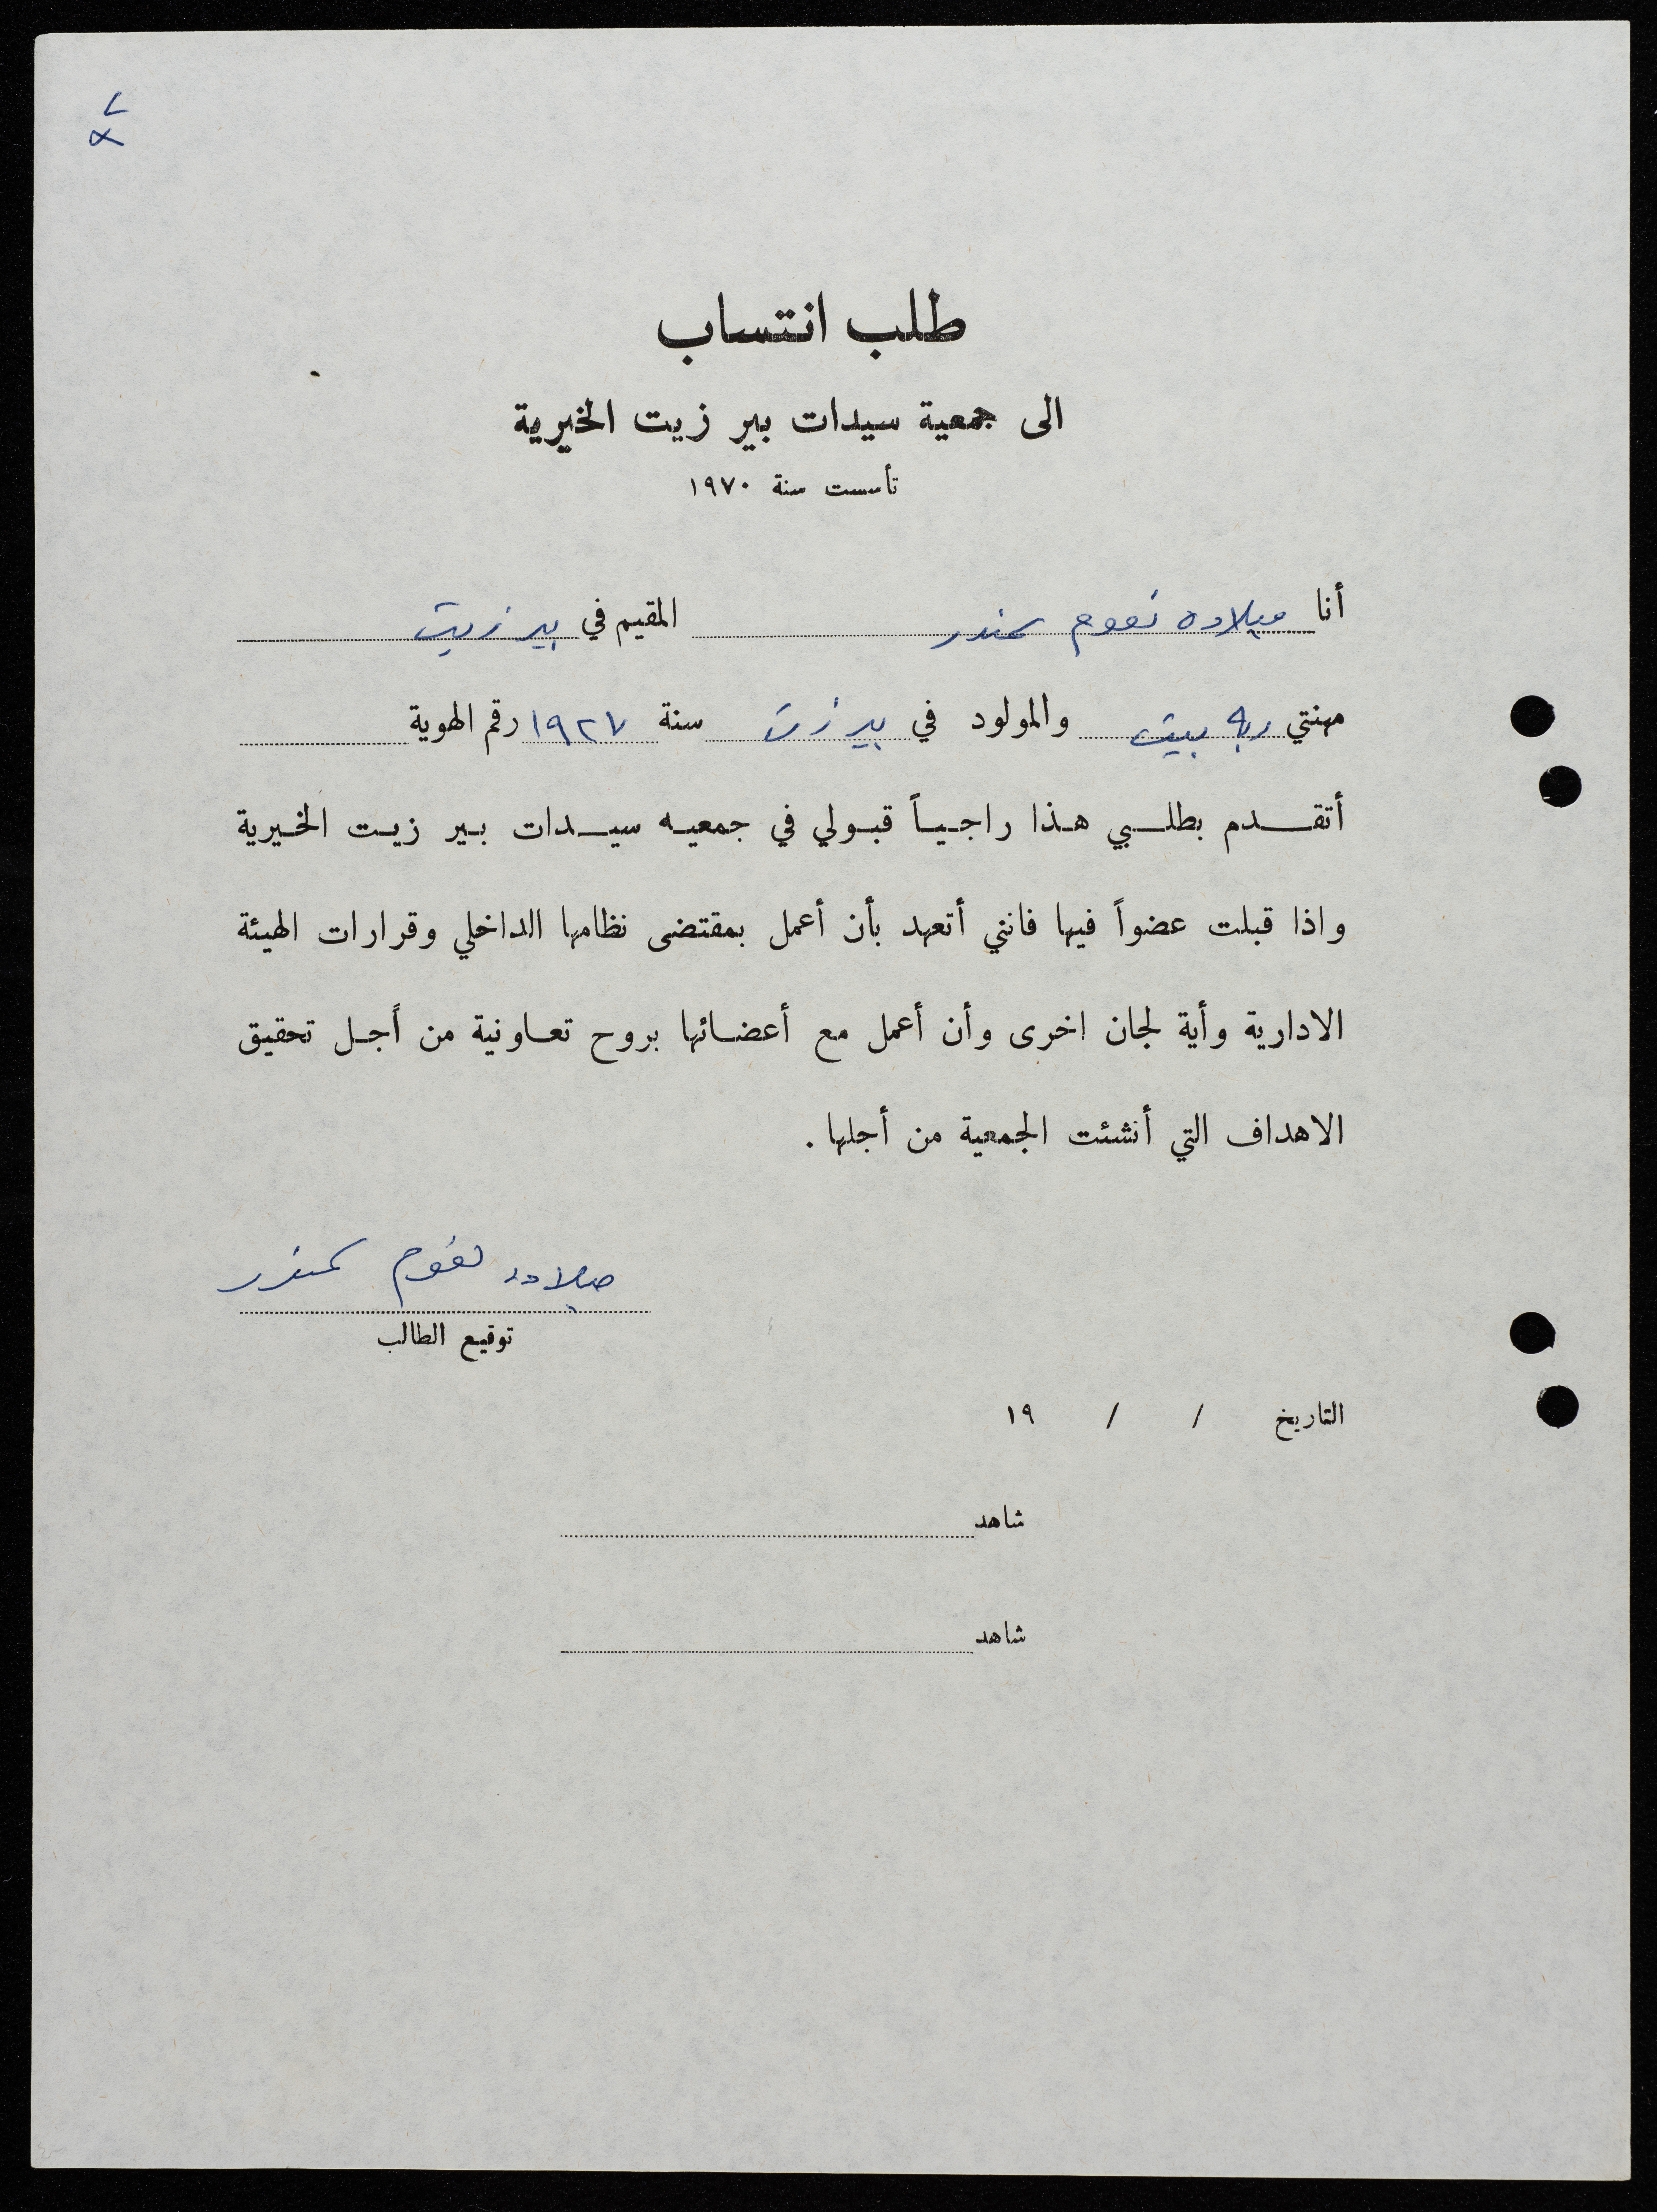 طلب انتساب
الى جمعية سيدات بير زيت الخيرية
تأسست سنة ١٩٧٠
أنا ميلاده نعوم سمندر المقيم في بير زيت
مهنتي ربه بيت والمولود في بير زيت سنة ١٩٢٧ رقم الهوية
أتقدم بطلبي هذا راجياً قبولي في جمعيه سيدات بير زيت الخيرية
واذا قبلت عضواً فيها فانني أتعهد بأن أعمل بمقتضى نظامها الداخلي وقرارات الهيئة
الادارية وأية لجان اخرى وأن أعمل مع أعضائها بروح تعاونية من أجل تحقيق
الاهداف التي أنشئت الجمعية من أجلها .
ميلاده نعوم سمندر
توقيع الطالب
التاريخ / / ١٩
شاهد
شاهد